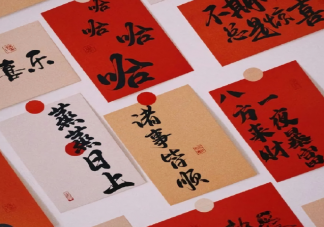 喜乐
哈
哈
哈
不期
总是惊喜
蒸蒸日上
诸事皆顺
一夜暴富
八方来财